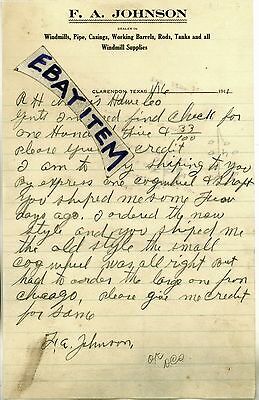 F. A. JOHNSON
DEALER IN
Windmills, Pipe, Casings, Working Barrels, Rods, Tanks and all
Windmill Supplies
CLARENDON, TEXAS 1/16 191
EBAY ITEM
R H
Gents I find check for
One Hund five & 33/100
Please credit
I am to shiping to you
By express one cog wheel & shaft
You shiped me some
days ago. I ordered the new
style and you shiped me
the old style the small
cog wheel was all right But
had to order the large one from
Chicago, Please give me credit
for Same
F. A. Johnson,
OK